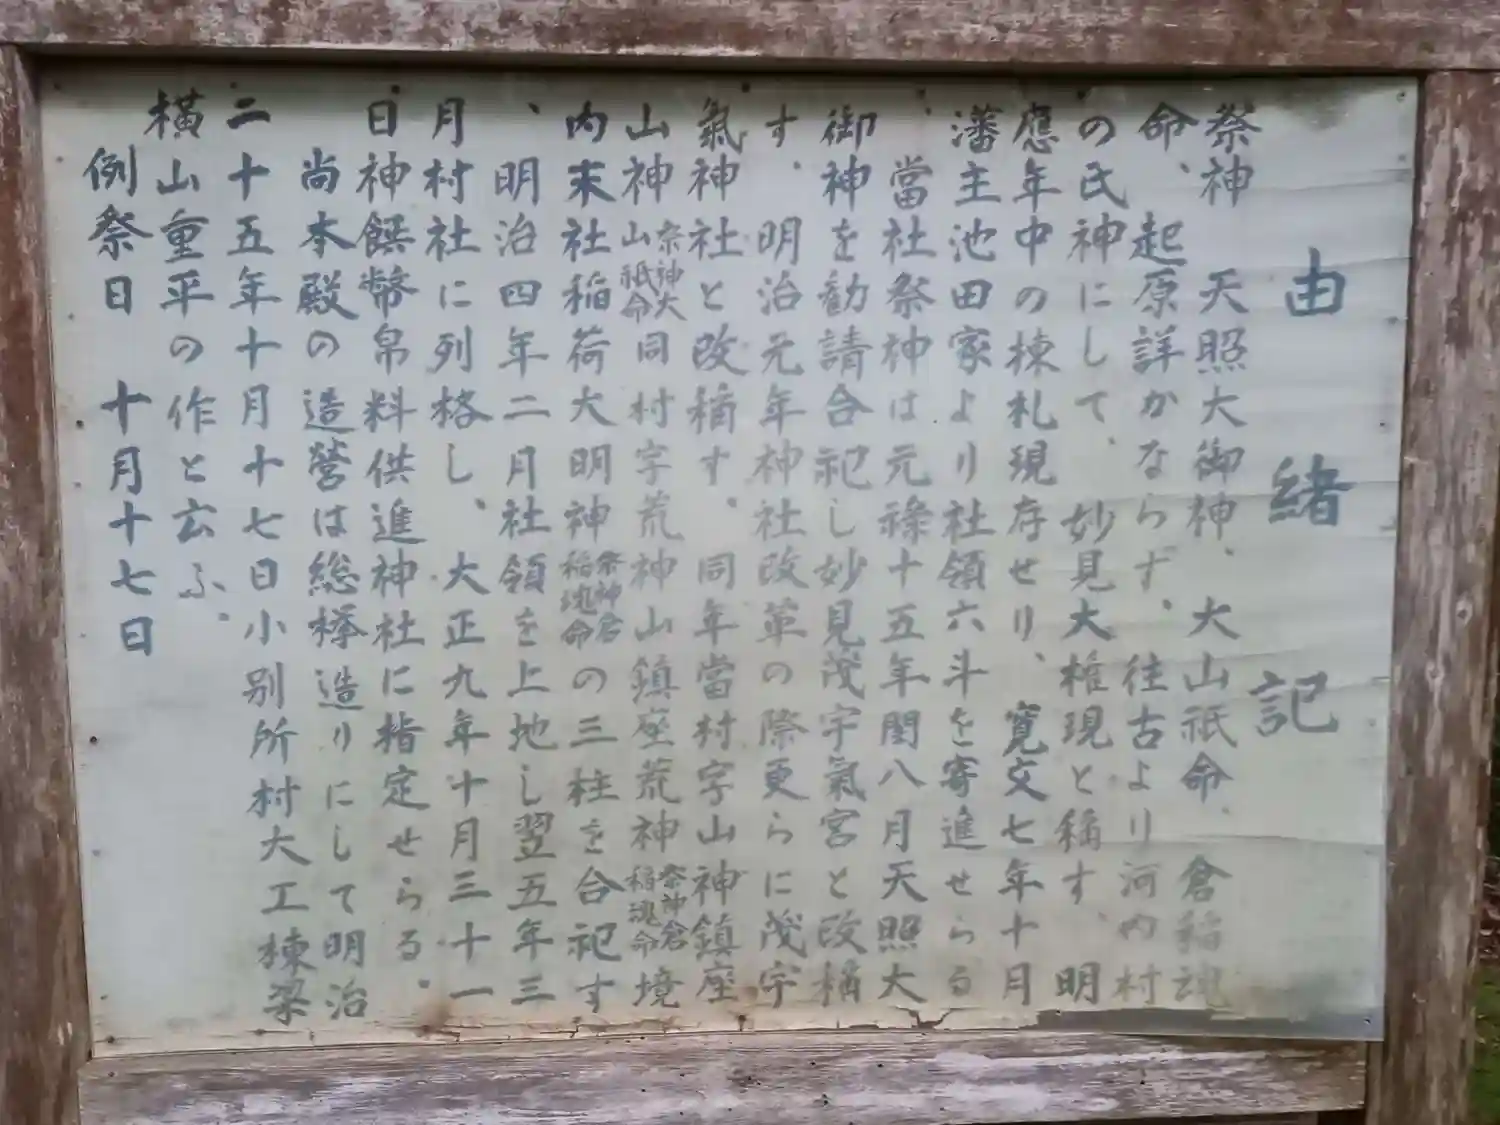 由緒記
祭神 天照大御神、大山祇命、倉稲魂
命、起原詳かならず、往古より河内村
の氏神にして、妙見大権現と稱す、明
應年中の棟札現存せり、寛文七年十月
藩主池田家より社領六斗を寄進せらる
當社祭神は元祿十五年閏八月天照大
御神を勧請合祀し妙見茂宇氣宮と改稱
す、明治元年神社改革の際更らに茂宇
氣神社と改稱す。同年當村字山神鎮座
山神祭神大山祇命同村字荒神山鎮座荒神祭神倉稲魂命境
内末社稲荷大明神祭神倉稲魂命の三柱を合祀す
、明治四年二月社領を上地し翌五年三
月村社に列格し、大正九年十月三十一
日神饌幣帛料供進神社に指定せらる。
尚本殿の造營は総欅造りにして明治
二十五年十月十七日小別所村大工棟梁
横山重平の作と云ふ。
例祭日 十月十七日